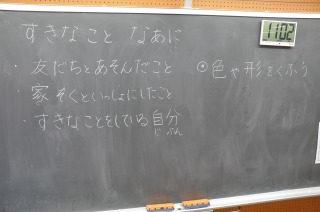 すきなこと なあに
・友だちとあそんだこと
・家ぞくといっしょにしたこと
・すきなことをしている自分
じぶん
⦿色や形をくふう
1102